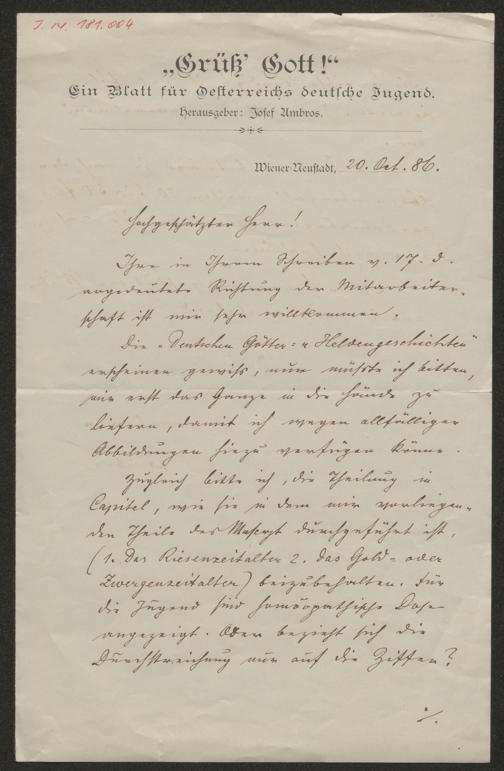 I. N. 181.004
„Grüß' Gott!“
Ein Blatt für Oesterreichs deutsche Jugend.
Herausgeber: Josef Ambros.
Wiener-Neustadt, 20. Oct. 86.
Hochgeschätzter Herr!
Ihre in Ihrem Schreiben v. 17. d.
angedeutete Richtung der Mitarbeiter-
schaft ist mir sehr willkommen.
Die „Deutschen Götter- u Heldengeschichten“
erscheinen gewiß, nur müßte ich bitten,
mir erst das Ganze in die Hände zu
liefern, damit ich wegen allfälliger
Abbildungen hiezu verfügen könne.
Zugleich bitte ich, die Theilung in
Capitel, wie sie in dem mir vorliegen-
den Theile des Manscrpt durchgeführt ist,
(1. Das Riesenzeitalter 2. das Gold- oder
Zwergenzeitalter) beizubehalten. Für
die Jugend sind homöopathische Dosen
angezeigt. Oder bezieht sich die
Durchstreichung nur auf die Ziffer?
·/.